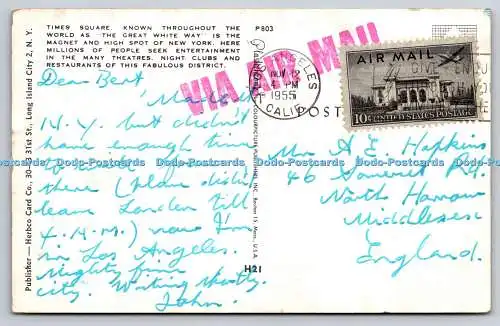 TIMES SQUARE. KNOWN THROUGHOUT THE
WORLD AS "THE GREAT WHITE WAY" IS THE
MAGNET AND HIGH SPOT OF NEW YORK. HERE
MILLIONS OF PEOPLE SEEK ENTERTAINMENT
IN THE MANY THEATRES. NIGHT CLUBS AND
RESTAURANTS OF THIS FABULOUS DISTRICT.
P803
VIA AIR MAIL
Dear Bert
Made it
N.Y. but didn't
have enough time
there (plane didn't
leave London till
4 A.M.) now I'm
in Los Angeles.
Mighty fine
city. Writing shortly.
John.
Publisher — Herbco Card Co., 30- 31st St., Long Island City 2, N. Y.
H21
LOS ANGELES
NOV 12
PM
1955
CALIF.
AIR MAIL
10¢ UNITED STATES POSTAGE
POST
Mr A.E. Hopkins
46 Somerset Rd.
North Harrow
Middlesex
England.
Dodo-Postcards Dodo-Postcards Dodo-Postcards Dodo-Postcards